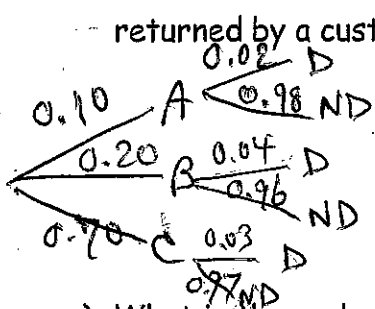 returned by a cust
0.02 D
0.10 A 0.98 ND
0.20 B 0.04 D
0.96 ND
0.70 C 0.03 D
0.97 ND